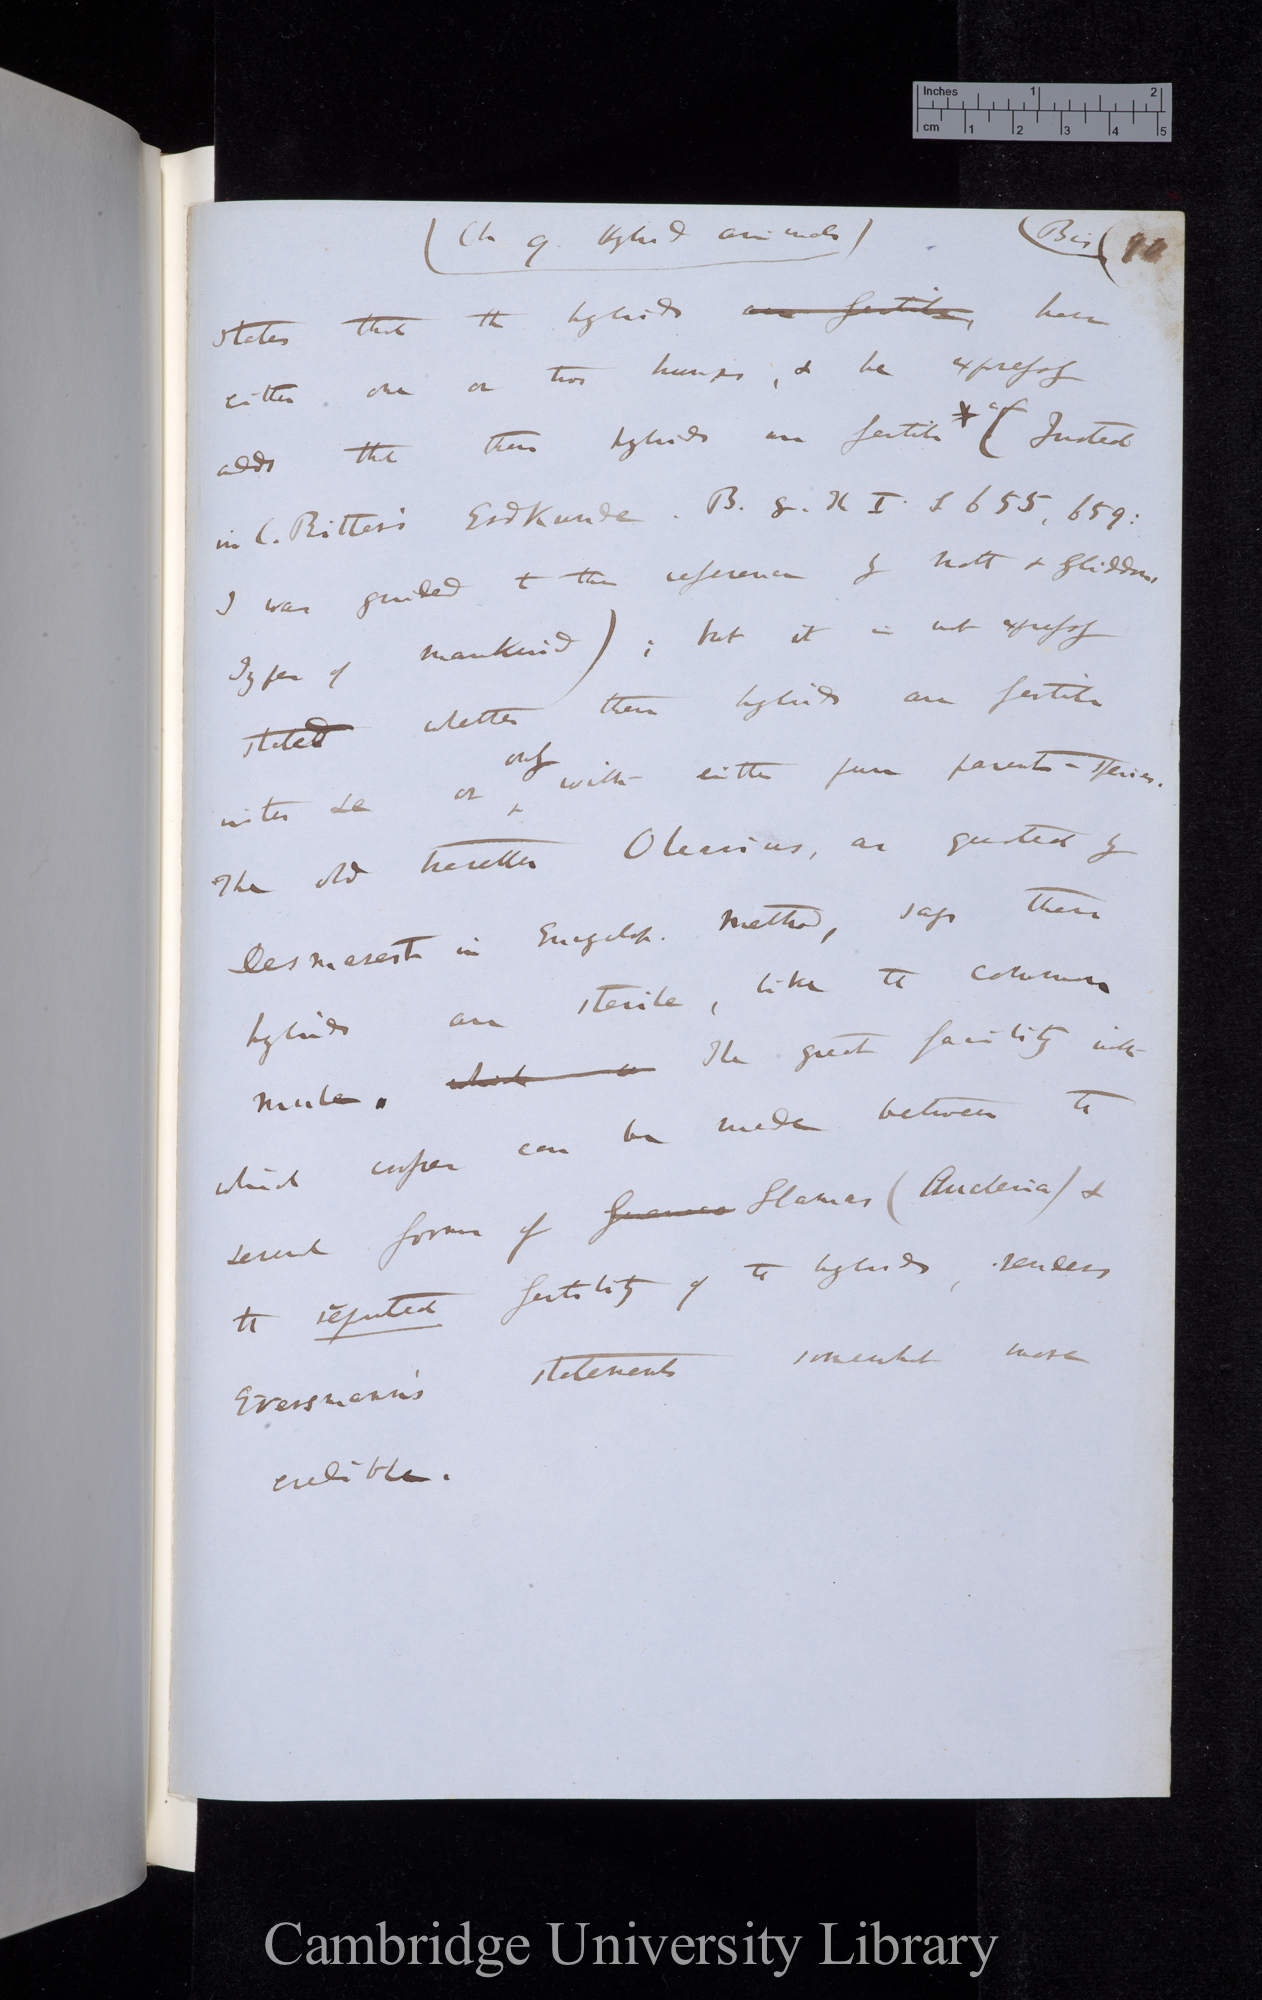 Inches 1 2
cm 1 2 3 4 5
(Ch 9. Hybrid animals) (Bis( 90
states that the hybrids are fertile, have
either one or two humps, & he expressly
adds that these hybrids are fertile* (Quoted
in C. Ritter's Erdkunde. B. 8. XII. S 655, 659:
I was guided to this reference by Nott & Gliddons
Types of mankind); but it is not expressly
stated whether these hybrids are fertile
inter se or only with either pure parent-species.
The old traveller Olearius, as quoted by
Desmarest in Encyclop. Method, says these
hybrids are sterile, like the common
mule. which is The great facility with
which crosses can be made between the
several forms of Guanaco Llamas (Auchenia) &
the reputed fertility of the hybrids, renders
Eversmann's statements somewhat more
credible.
Cambridge University Library